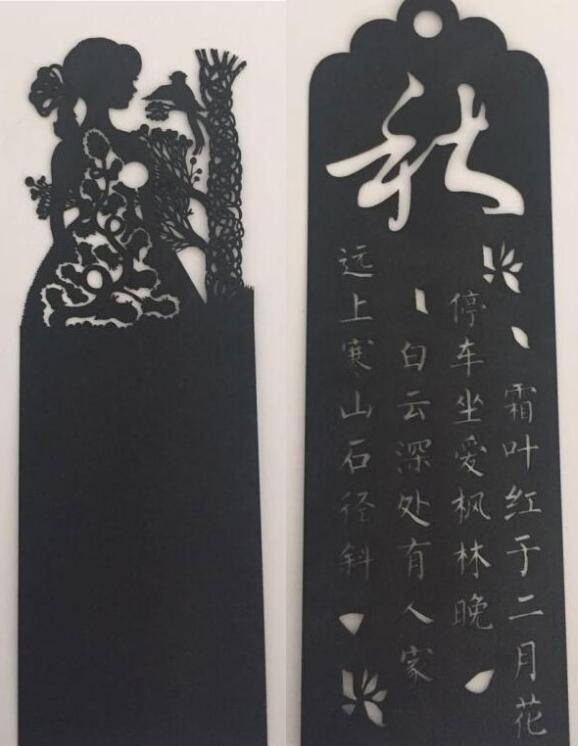 秋
远上寒山石径斜
白云深处有人家
停车坐爱枫林晚
霜叶红于二月花